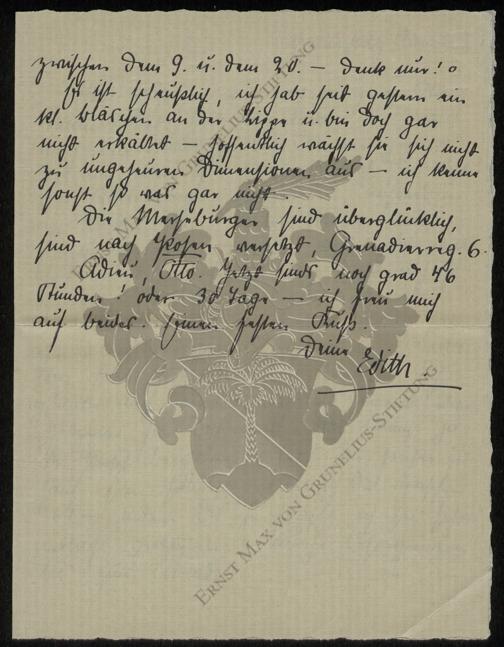 zwischen dem 9. u. dem 20. – denk nur! o
Es ist scheußlich, ich hab seit gestern ein
kl. Bläschen an der Lippe u. bin doch gar
nicht erkältet – hoffentlich wächst sie sich nicht
zu ungeheuren Dimensionen aus – ich kenne
sonst so was gar nicht.
Die Merseburger sind überglücklich,
sind nach Posen versetzt, Grenadierreg. 6.
Adieu, Otto. Jetzt sinds noch grad 46
Stunden! oder 30 Tage – ich freu mich
auf beides. Einen festen Kuß.
Deine Edith.
ERNST MAX VON GRUNELIUS-STIFTUNG
ERNST MAX VON GRUNELIUS-STIFTUNG